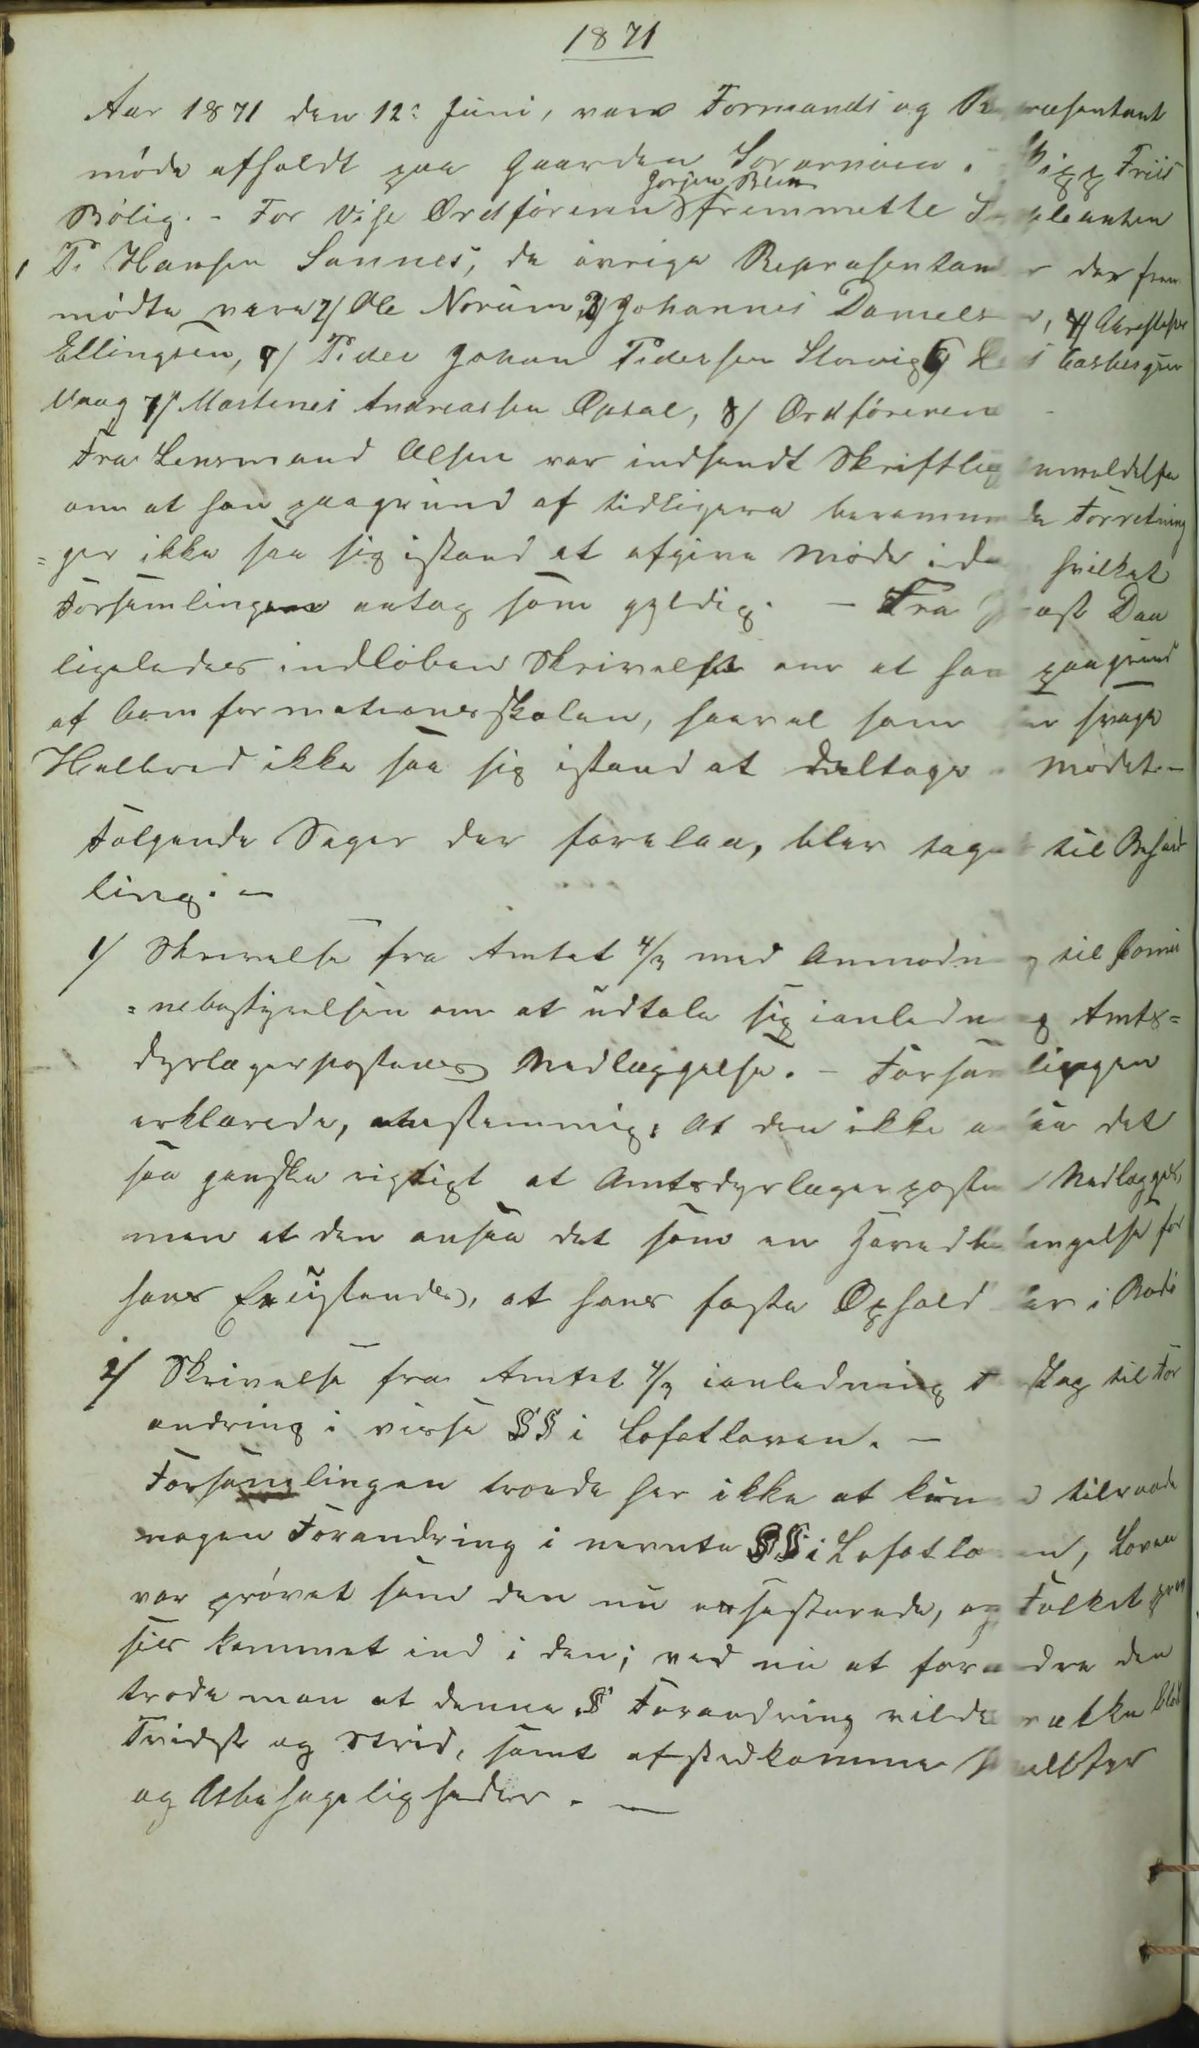 1871
Aar 1871 den 12: Juni, varo Formands og Repræsentant
møde afholdt paa Gaarden Sørarnøen i Skipp Friis
Bolig. – For Vise Ordføreren Jørgen Blix fremmøtte Supleanten
1 P. Hansen Sannes, de øvrige Repræsentanter der frem
mødte vare 2/ Ole Norum, 3/ Johannes Danielsen, 4/ Christofer
Ellingsen, 5/ Peder Johan Pedersen Storvig, 6/
Vaag 7/ Martines Andreassen Opsal, 8/ Ordføreren –
Fra Lensmand Olsen var indsendt Skriftlig Anmeldelse
om at han paagrund af tidligere berammede Forretnin
=ger ikke saa sig istand at afgive Møde idag hvilket
Forsamlingen antog som gyldig. – Fra Daa
ligeledes indløben Skrivelse om at han paagrund
af Comformationsskolen, saavel som sin svage
Helbred ikke saa sig istand at deltage i Mødet. –
Følgende Sager der forelaa, blev taget til Behand
ling. –
1/ Skrivelse fra Amtet 4/3 med Anmodning til Comu
=nebestyrelsen om at udtale sig ianledning Amts=
dyrlægerpostens Nedlæggelse. – Forsamlingen
erklærede, enstemmig: At den ikke ansaa det
saa ganske rigtigt at Amtsdyrlægerposten Nedlægges,
men at den ansaa det som en Hovedbetingelse for
hans Exsistends, at hans faste Ophold er i Bodø
2/ Skrivelse fra Amtet 4/3 ianledning Forslag til For
andring i visse §§ i Lofotloven. –
Forsamlingen troede her ikke at kunne tilraade
nogen Forandring i nevnte §§ i Lofotloven, Loven
var prøvet som den nu existerede, og Folket
kommet ind i den; ved nu at forandre den
trode man at denne § Forandring vilde vække blot
Tvidst og Strid, samt afstedkomme
og Ubehageligheder. –